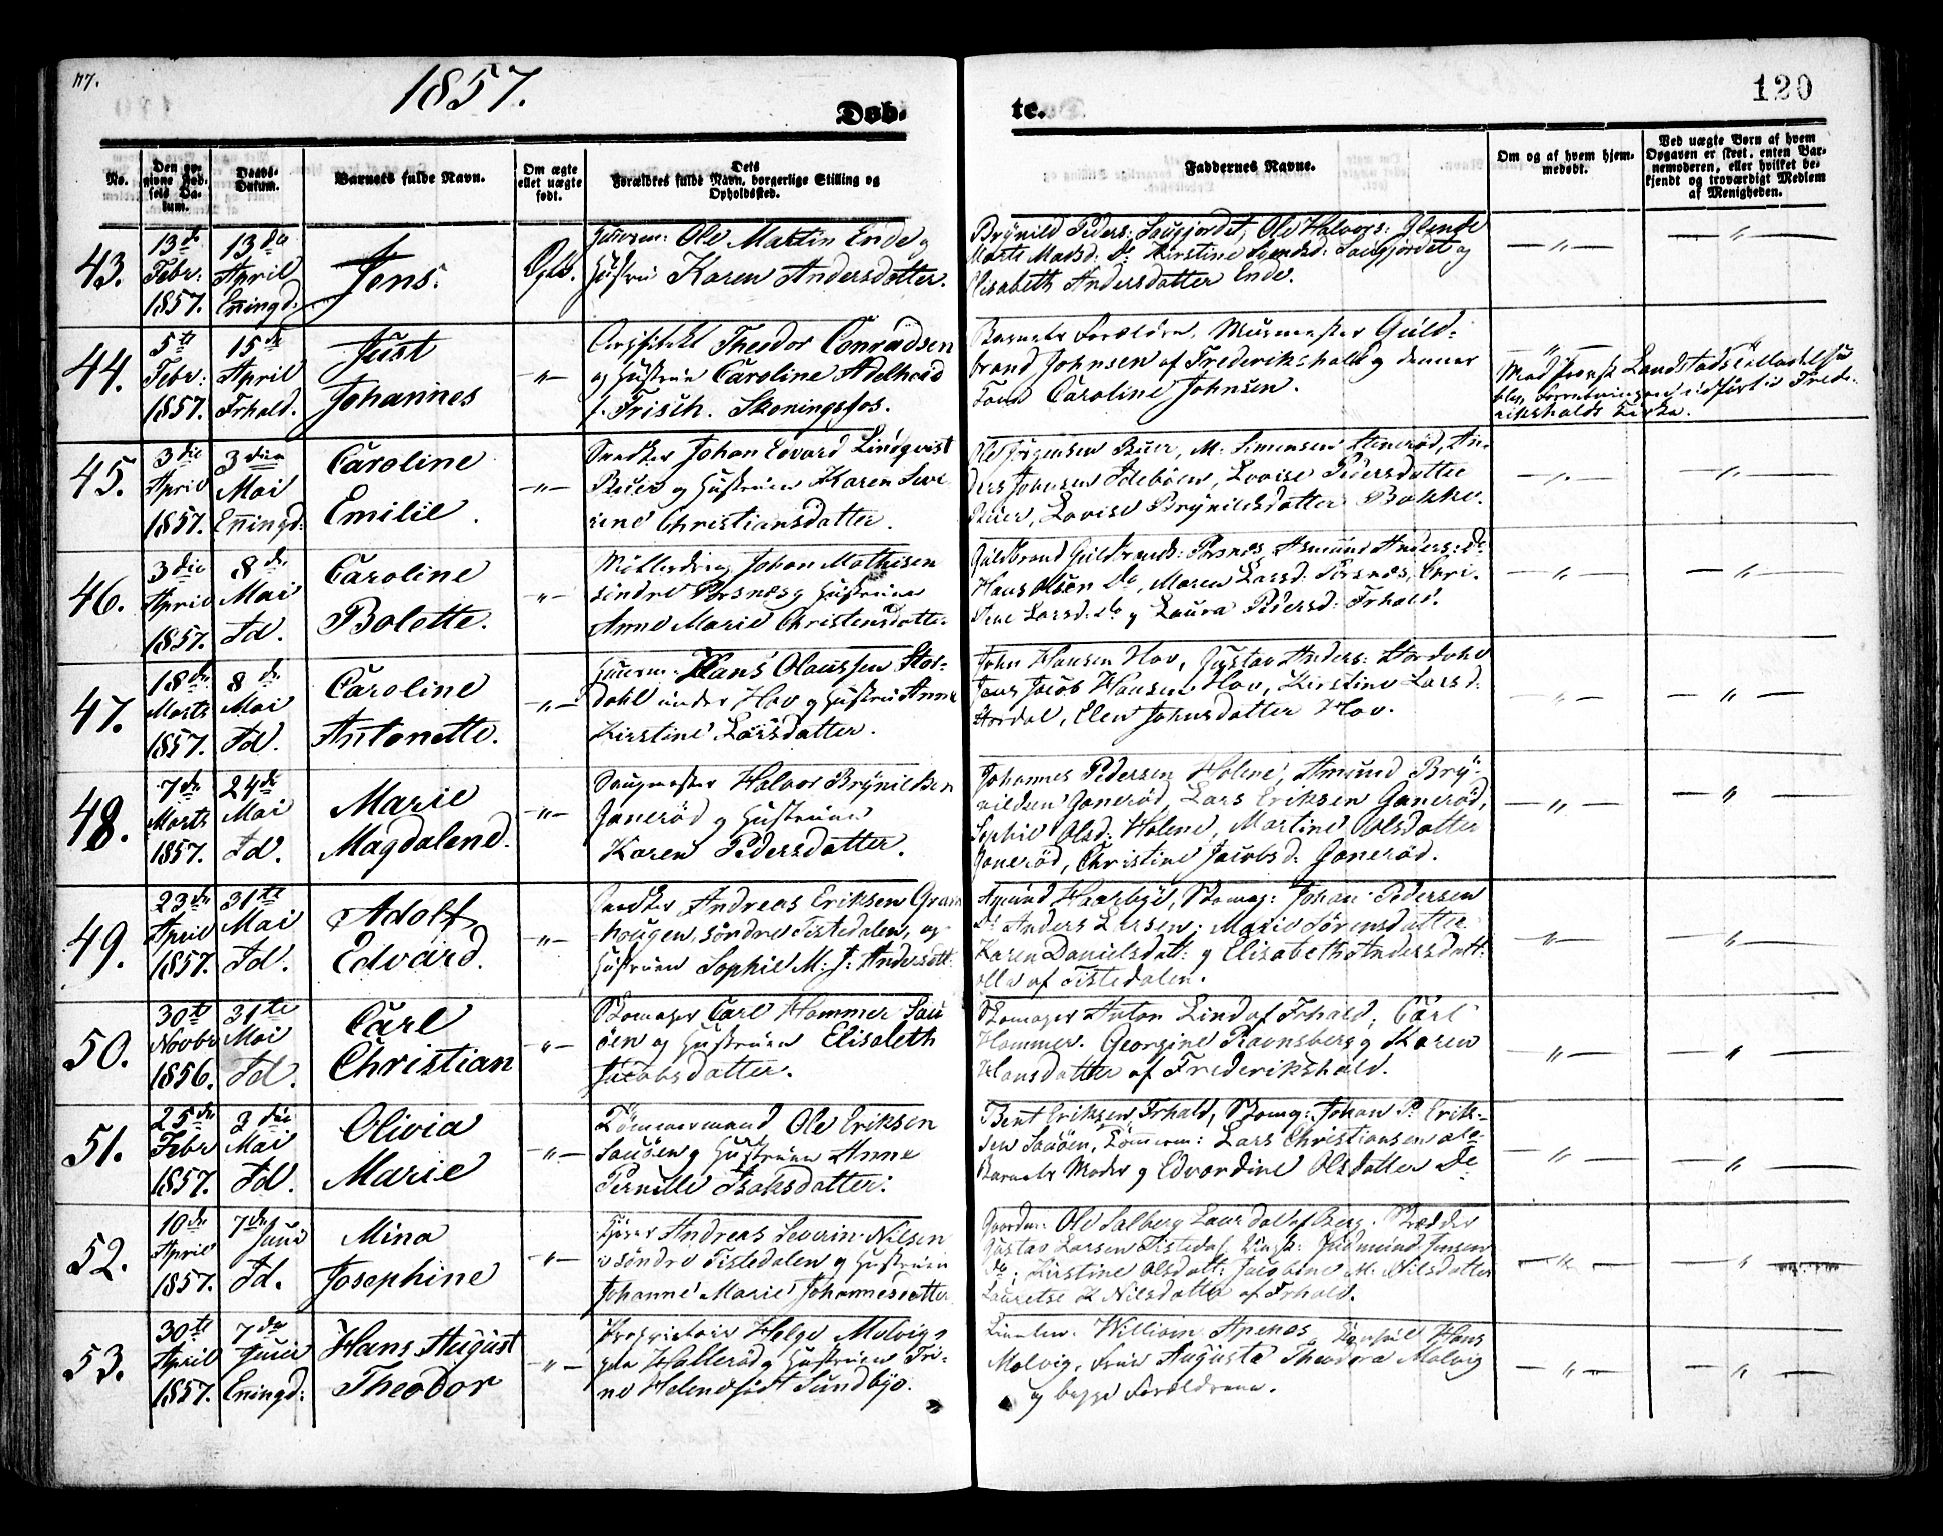 117.
1857.
Døb-
te.
120
No.
Den opgivne Fødsels Datum.
Daabs-Datum.
Barnets fulde Navn.
Om ægte eller uægte født.
Dets Forældres fulde Navn, borgerlige Stilling og Opholdssted.
Faddernes Navne.
Om og af hvem hjemmedøbt.
Ved uægte Børn af hvem Opgaven er skeet, enten Barnemoderen, eller hvilket bekjendt og troværdigt Medlem af Menigheden.
43.
13de Febr: 1857.
13de April Enningd.
Jens.
Ole Martin Ende og
Hustru Karen Andersdatter.
Brynild Peders: Saugjordet, Ole Halvors:
Marte Madsd: Do Kirstine Svendsd: Saugjordet og
Elisabeth Andersdatter Ende.
44.
5te Febr: 1857.
15de April Frhald.
Just
Johannes
Theodor Conradsen
og Hustrue Caroline Adelheid
f. Frisch. Skoningsfos.
Barnets Forældre, Muurmester Guld-
brand Johnsen af Frederikshald og dennes
Caroline Johnsen.
Landstads
rikshalds Kirke.
45.
3die April 1857.
3die Mai Enningd:
Caroline
Emilie.
Snedker Johan Edvard Lindqvist
Buer og Hustruen Karen Seve
rine Christiansdatter.
Ole Jørgensen Buer, M. Simensen Stenerød, An-
ders Johnsen Idebøen, Lovise Pedersdatter
Buer, Lovise Brynildsdatter Bakke.
46.
3die April 1857.
8de Mai Id.
Caroline
Bolette.
Johan Mathisen
søndre Torsnes og Hustruen
Anne Marie Christensdatter.
Guldbrand Guldbrands: Torsnes, Asmund Anders: do
Hans Olsen Do, Maren Larsd: Torsnes, Chri-
stine Larsd: do og Laura Pedersd: Frhald.
47.
18de Marts 1857.
8de Mai Id.
Caroline
Antonette.
Huusm. Hans Olaussen Stor-
dahl under Hov og Hustru Anne
Kirstine Larsdatter.
John Hansen Hov, Gustav Anders: Stordahl
Jens Jacob Hansen Hov, Kirstine Larsd:
Stordal, Elen Johnsdatter Hov.
48.
7de Marts 1857.
24de Mai Id.
Marie
Magdalene.
Saugmester Halvor Brynildsen
Ganerød og Hustruen
Karen Pedersdatter.
Johannes Pedersen Holene, Amund Bry-
nildsen Ganerød, Lars Eriksen Ganerød,
Sophie Olsd: Holene, Martine Olsdatter
Ganerød, Christine Jacobsd: Ganerød.
49.
23de April 1857.
31te Mai Id.
Adolf
Edvard.
Snedker Andreas Eriksen Gran
hougen, søndre Tistedalen, og
Hustruen Sophie M: J: Andersdatt
Amund Haarbye, Skomag: Johan Pedersen
Do Anders Larsen; Marie Sørensdatter
Karen Danielsdatt: og Elisabeth Andersdatt:
alle af Tistedalen.
50.
30te Novbr 1856.
31te Mai Id.
Carl
Christian
Skomager Carl Hammer Sau
øen og Hustruen Elisabeth
Jacobsdatter.
Skomager Anton Lind af Frhald, Carl
Hammer. Georgine Ravnsberg og Karen
Hansdatter af Frederikshald.
51.
25de Febr 1857.
3die Mai Id.
Olivia
Marie
Tømmermand Ole Eriksen
Sauøen og Hustruen Anne
Pernille Isaksdatter.
Bent Eriksen Frhald, Skomag: Johan P. Erik-
sen Sauøen, Tømmerm: Lars Christiansen
Barnets Moder og Edvardine Olsdatter Do
52.
10de April 1857.
7de Juni Id.
Mina
Josephine
Andreas Severin Nilsen
i søndre Tistedalen og Hustruen
Johanne Marie Johannesdatter
Gaardm: Ole Salberg Laurdal af Berg. Skrædder
Gustav Larsen Tistedal, Gudmund Jensen
Do; Kirstine Olsdatt: Jacobine M. Nilsdatter
Lauretse K Nilsdatter af Frhald.
53.
30te April 1857.
7de Juni Enningd:
Hans August
Theodor
Proprietair Helge Molvig
Hallerød og Hustruen Tri-
ne Helene født Sundbye.
William Apenes, Hans
Molvig, Frue Augusta Theodora Molvig
og begge Forældrene.